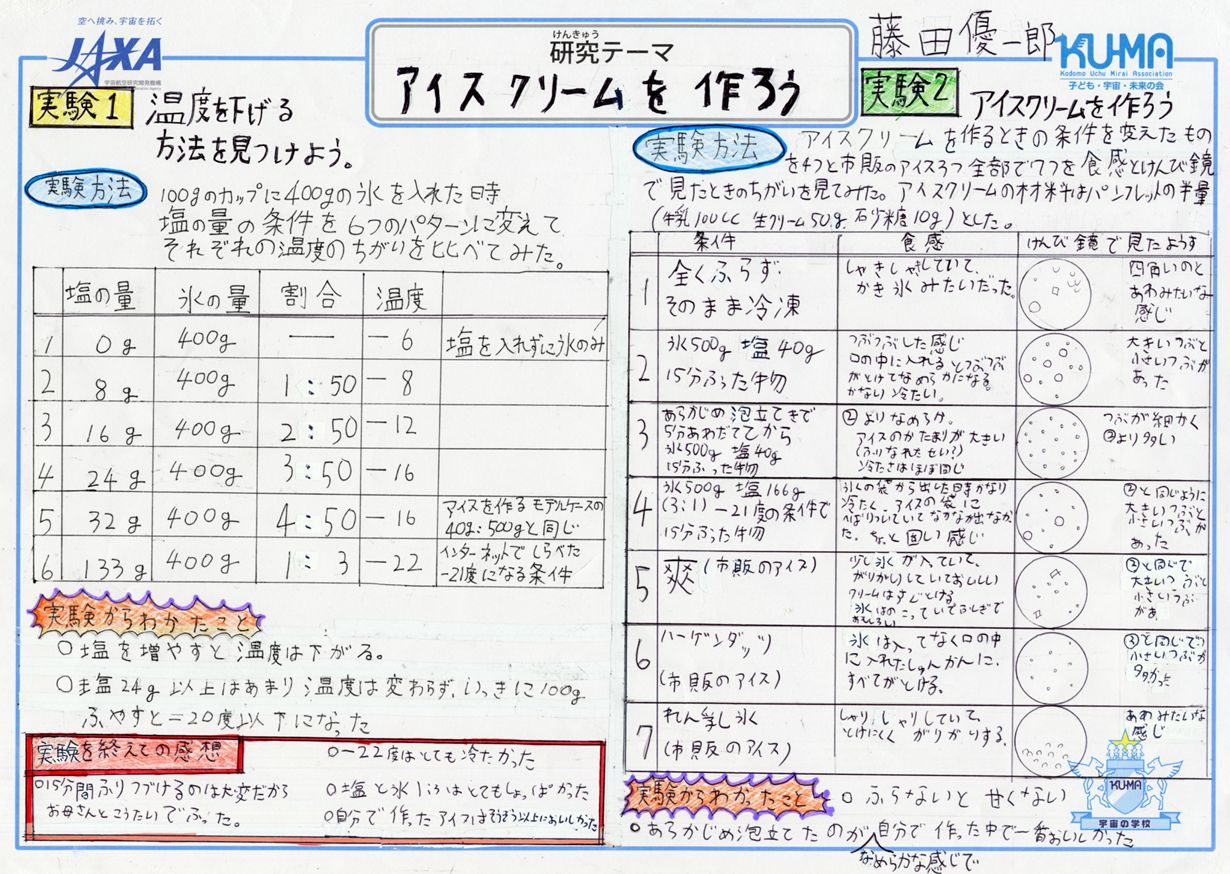 空へ挑み、宇宙を拓く
JAXA
宇宙航空研究開発機構
けんきゅう
研究テーマ
アイスクリームを作ろう
藤田優一郎
KU-MA
Kodomo Uchu Mirai Association
子ども・宇宙・未来の会
実験1
温度を下げる
方法を見つけよう。
実験方法
100gのカップに400gの氷を入れた時
塩の量の条件を6つのパターンに変えて
それぞれの温度のちがいを比べてみた。
塩の量 氷の量 割合 温度
1 0g 400g — -6 塩を入れずに氷のみ
2 8g 400g 1:50 -8
3 16g 400g 2:50 -12
4 24g 400g 3:50 -16
5 32g 400g 4:50 -16 アイスを作るモデルケースの
40g:500gと同じ
6 133g 400g 1:3 -22 インターネットでしらべた
-21度になる条件
実験からわかったこと
○塩を増やすと温度は下がる。
○塩24g以上はあまり温度は変わらず、いっきに100g
ふやすと-20度以下になった
実験を終えての感想
○15分間ふりつづけるのは大変だから
お母さんとこうたいでふった。
○-22度はとても冷たかった
○塩と氷1:3はとてもしょっぱかった
○自分で作ったアイスはそうぞう以上においしかった
実験2
アイスクリームを作ろう
実験方法
アイスクリームを作るときの条件を変えたもの
を4つと市販のアイス3つ全部で7つを食感とけんび鏡
で見たときのちがいを見てみた。アイスクリームの材料はパンフレットの半量
(牛乳100cc 生クリーム50g 石少糖10g)とした。
条件 食感 けんび鏡で見たようす
1
全くふらず
そのまま冷凍
しゃきしゃきしていて、
かき氷みたいだった。
四角いのと
あわみたいな
感じ
2
氷500g 塩40g
15分ふった物
つぶつぶした感じ
口の中に入れるとつぶつぶ
がとけてなめらかになる。
かなり冷たい。
大きいつぶと
小さいつぶが
あった
3
あらかじめ泡立てきで
5分あわだててから
氷500g 塩40g
15分ふった物
②よりなめらか。
アイスのかたまりが大きい
(ふりなれたせい?)
冷たさはほぼ同じ
つぶが細かく
②より多い
4
氷500g 塩166g
(3:1) -21度の条件で
15分ふった物
氷の袋から出した時かなり
冷たく、アイスの袋に
はりついていてなかなか出なかっ
た。ちょっと固い感じ
②と同じように
大きいつぶと
小さいつぶが
あった
5
爽(市販のアイス)
少し氷が入ていて、
がりがりしていておいしい
クリームはすぐとける
氷はのこっていてふしぎで
おもしろい
②と同じで
大きいつぶと
小さいつぶ
があ
6
ハーゲンダッツ
(市販のアイス)
氷は入ってなく口の中
に入れたしゅんかんに、
すべてがとける。
③と同じで
小さいつぶが
多かった
7
れん乳し氷
(市販のアイス)
しゃりしゃりしていて、
とけにくくがりがりする。
あわみたいな
感じ
実験からわかったこと
○ふらないと甘くない
○あらかじめ泡立てたのが自分で作った中で一番おいしかった
なめらかな感じで
KU-MA
宇宙の学校